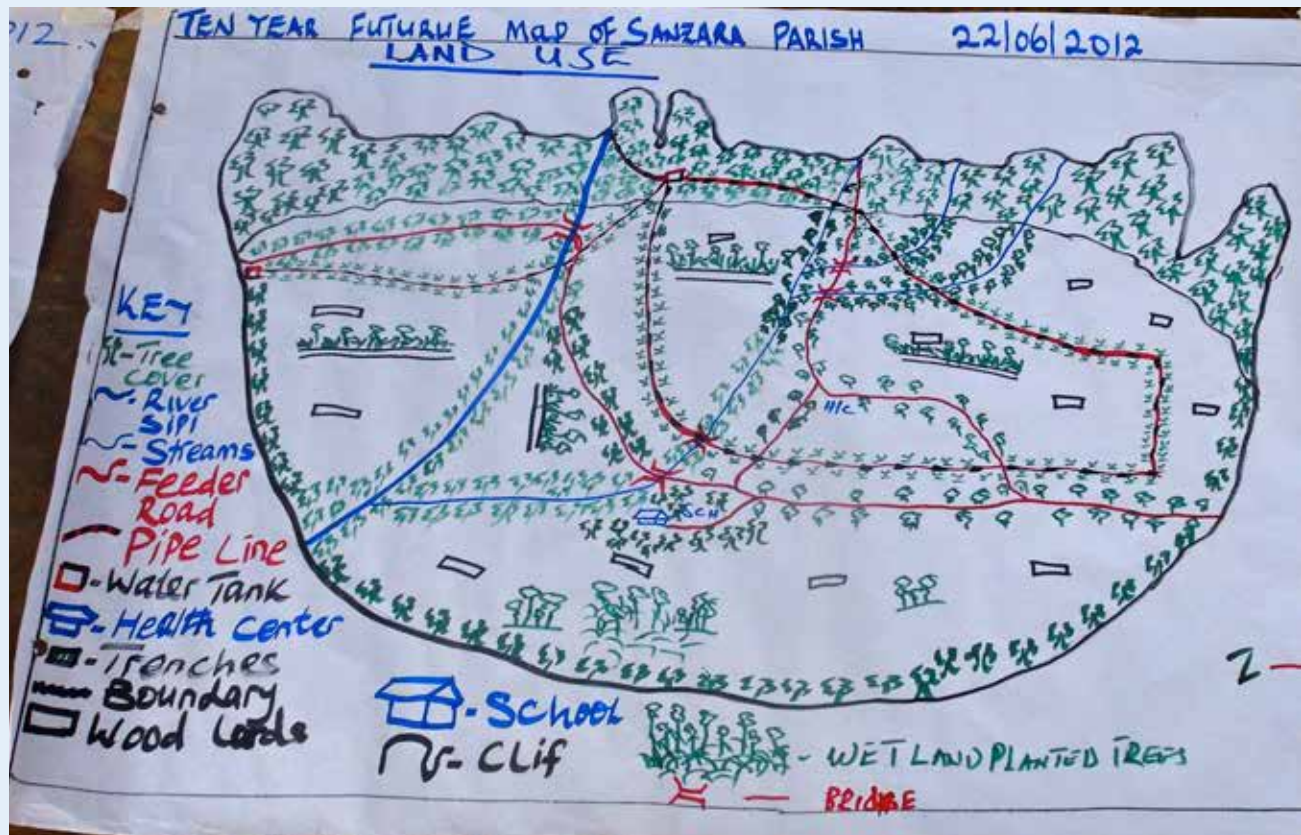 012
TEN YEAR FUTURUE MAP OF SANZARA PARISH 22/06/2012
LAND USE
KEY
- Tree
cover
- River
SIPI
- Streams
- Feeder
Road
Pipe Line
- Water Tank
- Health center
- Trenches
- Boundary
Wood Lords
H/C
SCH
- School
- Clif
- WETLAND PLANTED TREES
- BRIDGE
Z -